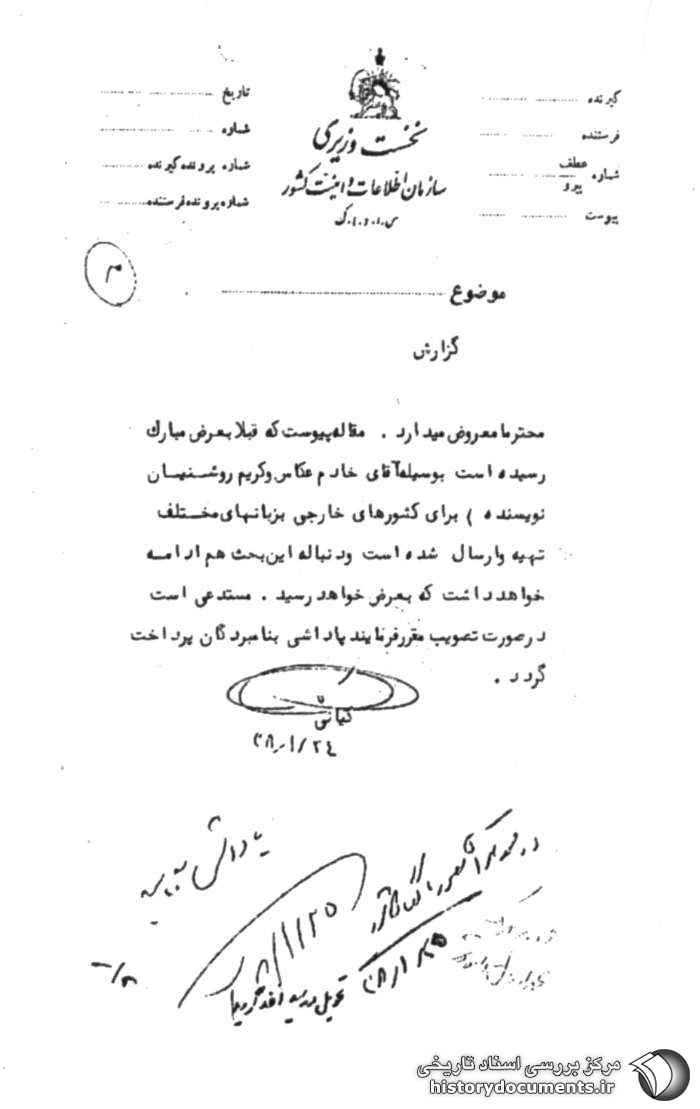 نخست وزیری
سازمان اطلاعات و امنیت کشور
س.ا.و.ا.ک
گیرنده
فرستنده
شماره عطف پیرو
پیوست
تاریخ
شماره
شماره پرونده گیرنده
شماره پرونده فرستنده
موضوع
گزارش
محترما معروض میدارد . مقاله پیوست که قبلا بعرض مبارک
رسیده است بوسیله آقای خادم عکاس و کریم روشنیان
نویسنده ) برای کشورهای خارجی بزبانهای مختلف
تهیه و ارسال شده است و دنباله این بحث هم ادامه
خواهد داشت که بعرض خواهد رسید . مستدعی است
در صورت تصویب مقرر فرمایند پاداشی بنامبردگان پرداخت
گردد .
کیانی
۳۸/۱/۲٤
۸/۱/۲۵
۳۸/۱/۲۵
مرکز بررسی اسناد تاریخی
historydocuments.ir